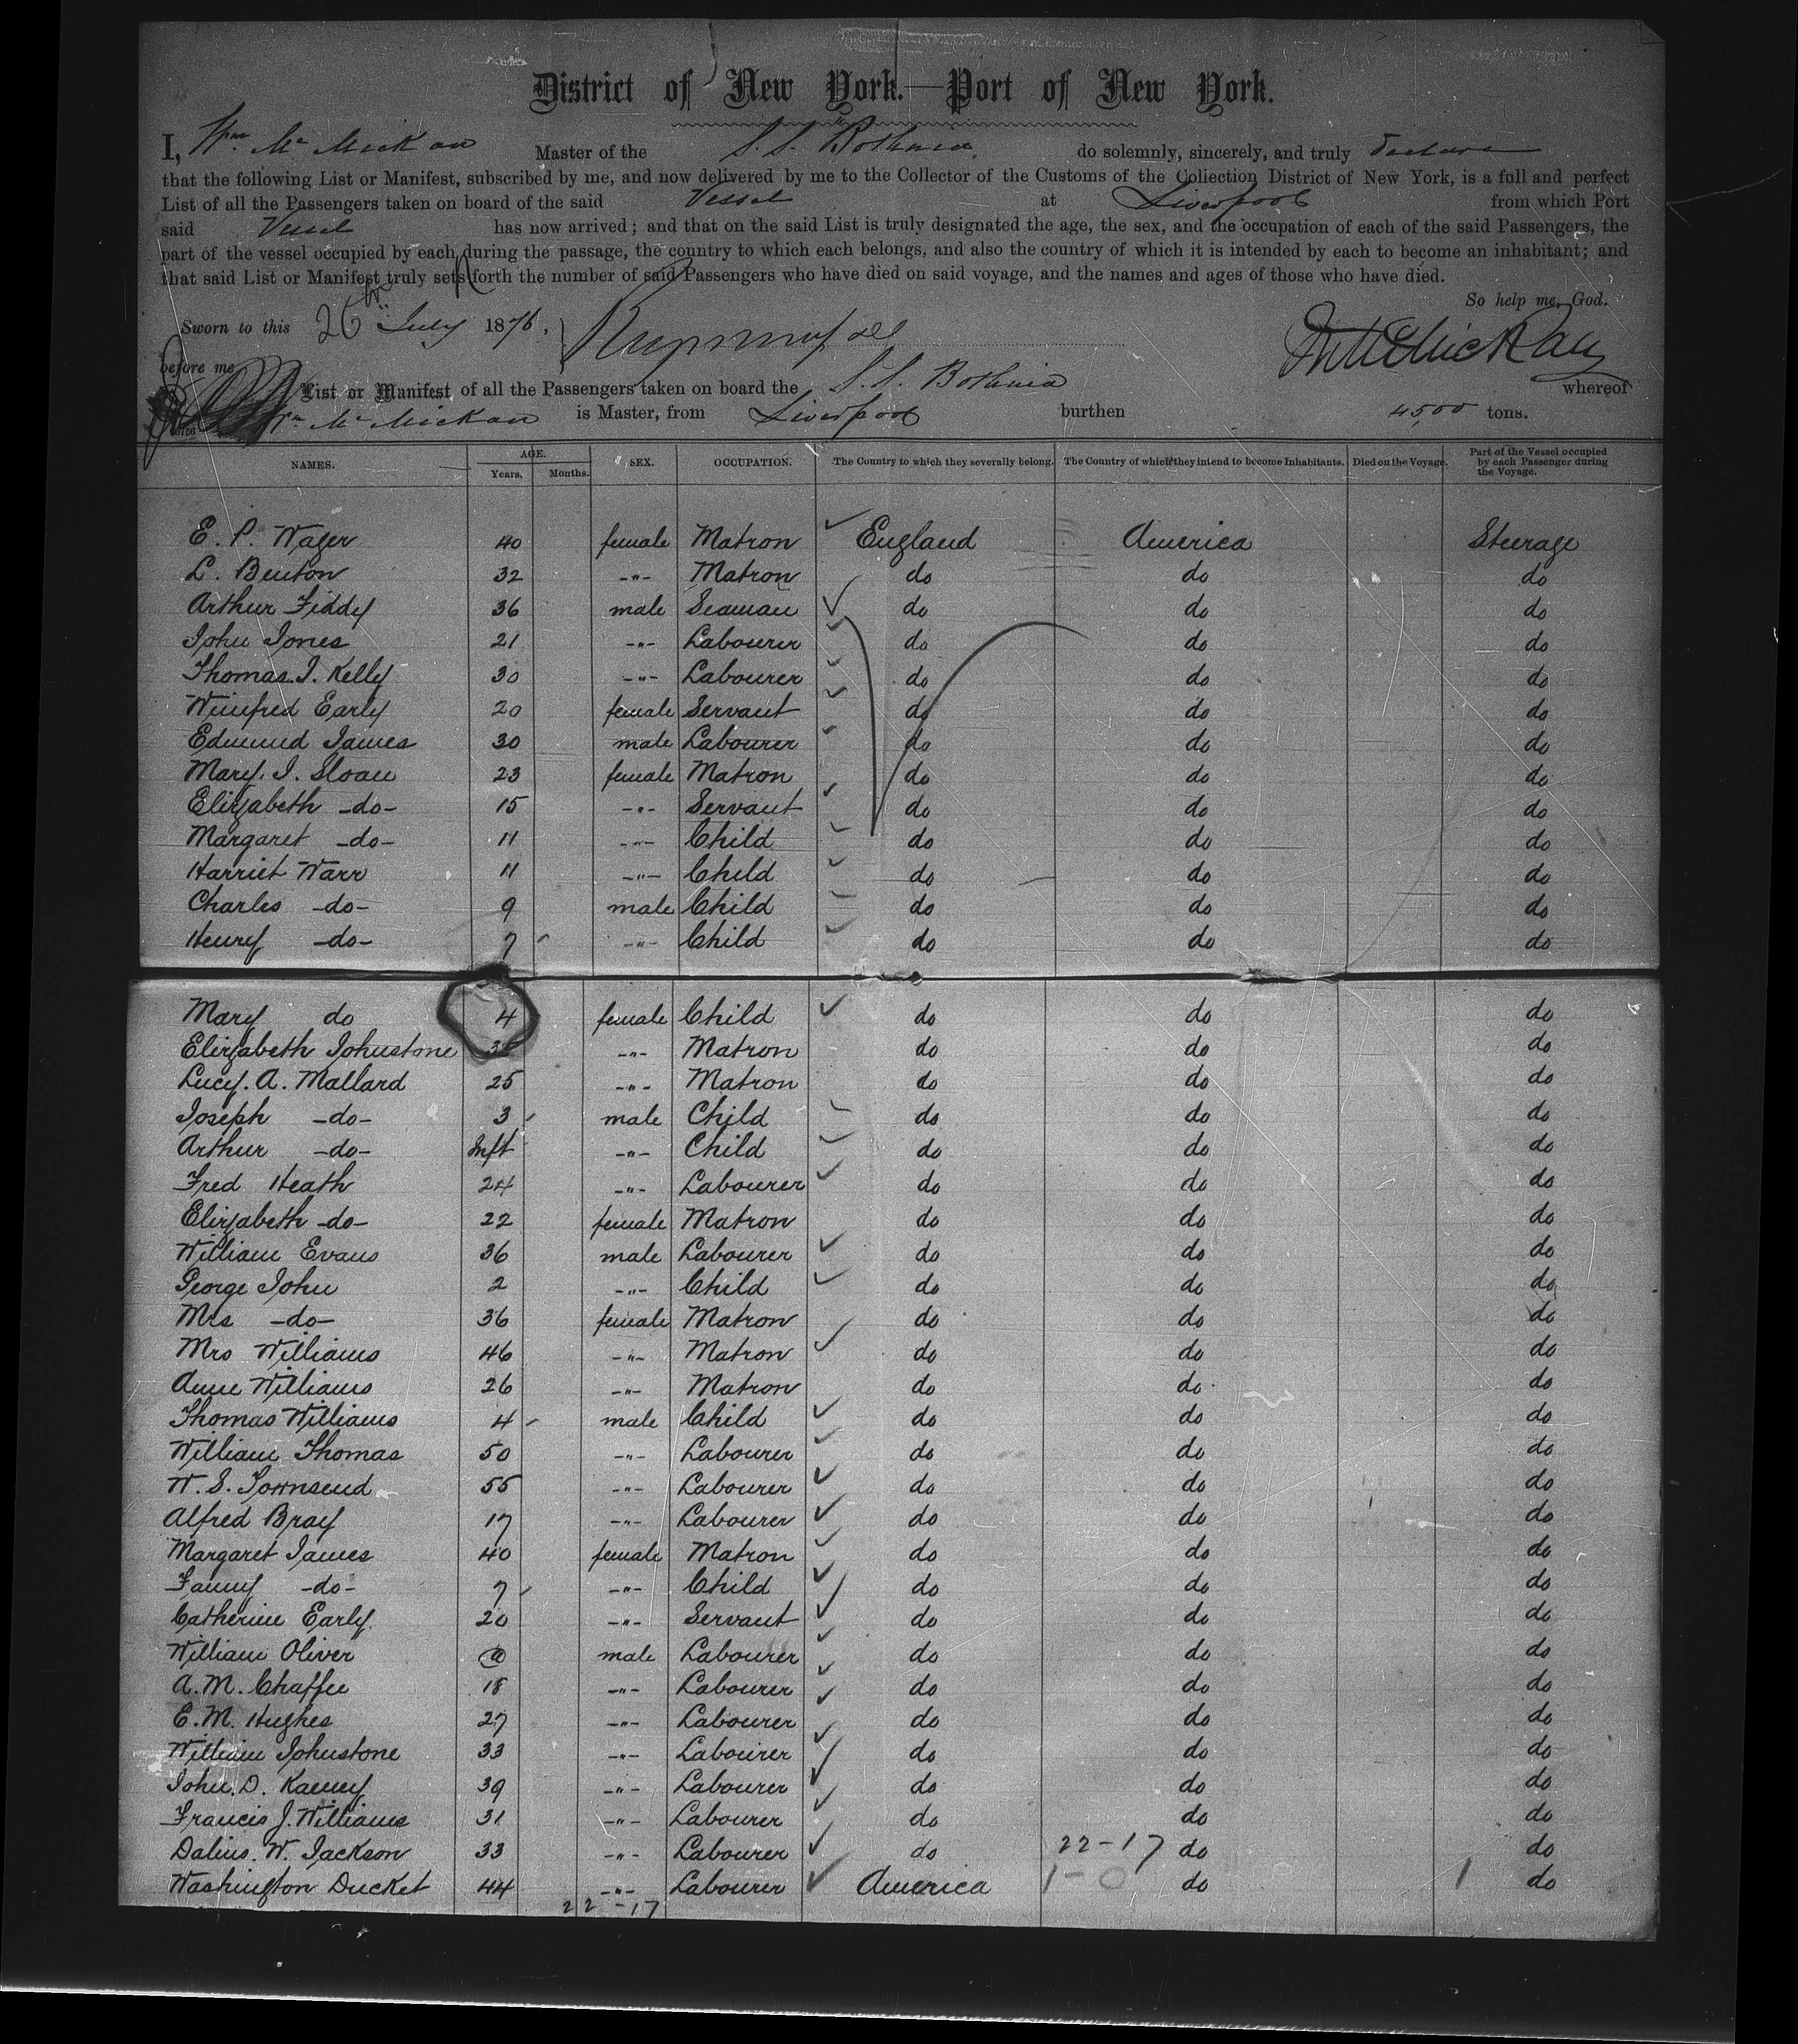 District of New York.—Port of New York.
I, Wm McMickan Master of the S.S. Bothnia do solemnly, sincerely, and truly declare
that the following List or Manifest, subscribed by me, and now delivered by me to the Collector of the Customs of the Collection District of New York, is a full and perfect
List of all the Passengers taken on board of the said Vessel at Liverpool from which Port
said Vessel has now arrived; and that on the said List is truly designated the age, the sex, and the occupation of each of the said Passengers, the
part of the vessel occupied by each during the passage, the country to which each belongs, and also the country of which it is intended by each to become an inhabitant; and
that said List or Manifest truly sets forth the number of said Passengers who have died on said voyage, and the names and ages of those who have died.
So help me, God.
Sworn to this 26th July 1876,
before me
List or Manifest of all the Passengers taken on board the S.S. Bothnia whereof
Wm McMickan is Master, from Liverpool burthen 4500 tons.
NAMES. AGE. Years. Months. SEX. OCCUPATION. The Country to which they severally belong. The Country of which they intend to become Inhabitants. Died on the Voyage. Part of the Vessel occupied by each Passenger during the Voyage.
E. P. Wager 40 female Matron England America Steerage
L. Benton 32 -"- Matron do do do
Arthur Fiddy 36 male Seaman do do do
John Jones 21 -"- Labourer do do do
Thomas. J. Kelly 30 -"- Labourer do do do
Winifred Early 20 female Servant do do do
Edmund James 30 male Labourer do do do
Mary. J. Sloan 23 female Matron do do do
Elizabeth -do- 15 -"- Servant do do do
Margaret -do- 11 -"- Child do do do
Harriet Warr 11 -"- Child do do do
Charles -do- 9 male Child do do do
Henry -do- 7 -"- Child do do do
Mary do 4 female Child do do do
Elizabeth Johnstone -"- Matron do do do
Lucy. A. Mallard 25 -"- Matron do do do
Joseph -do- 3 male Child do do do
Arthur -do- Inft -"- Child do do do
Fred Heath 24 -"- Labourer do do do
Elizabeth -do- 22 female Matron do do do
William Evans 36 male Labourer do do do
George John 2 -"- Child do do do
Mrs -do- 36 female Matron do do do
Mrs Williams 46 -"- Matron do do do
Anne Williams 26 -"- Matron do do do
Thomas Williams 4 male Child do do do
William Thomas 50 -"- Labourer do do do
W. S. Townsend 55 -"- Labourer do do do
Alfred Bray 17 -"- Labourer do do do
Margaret James 40 female Matron do do do
Fanny -do- 7 -"- Child do do do
Catherine Early. 20 -"- Servant do do do
William Oliver male Labourer do do do
A. M. Chaffee 18 -"- Labourer do do do
E. M. Hughes 27 -"- Labourer do do do
William Johnstone 33 -"- Labourer do do do
John. D. 39 -"- Labourer do do do
Francis J. Williams 31 -"- Labourer do do do
Dalius. W. Jackson 33 -"- Labourer do 22-17 do do
Washington Ducket 44 -"- Labourer America 1-0 do 1 do
22-17